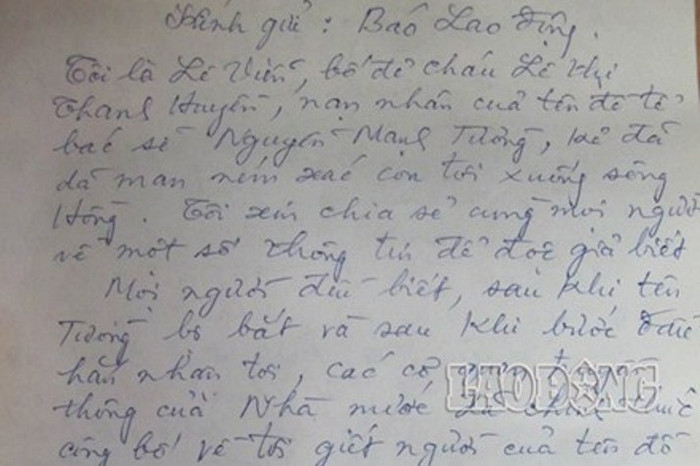 Kính gửi: Báo Lao động.
Tôi là Lê Viễn, bố đẻ cháu Lê Thị
Thanh Huyền, nạn nhân của tên đồ tể
bác sĩ Nguyễn Mạnh Tường, kẻ đã
dã man ném xác con tôi xuống sông
Hồng. Tôi xin chia sẻ cùng mọi người
về một số thông tin để độc giả biết
Mọi người đều biết, sau khi tên
Tường bị bắt và sau khi bước đầu
hắn nhận tội, các cơ quan truyền
thông của Nhà nước đã chính thức
công bố về tội giết người của tên đồ
LAO ĐỘNG